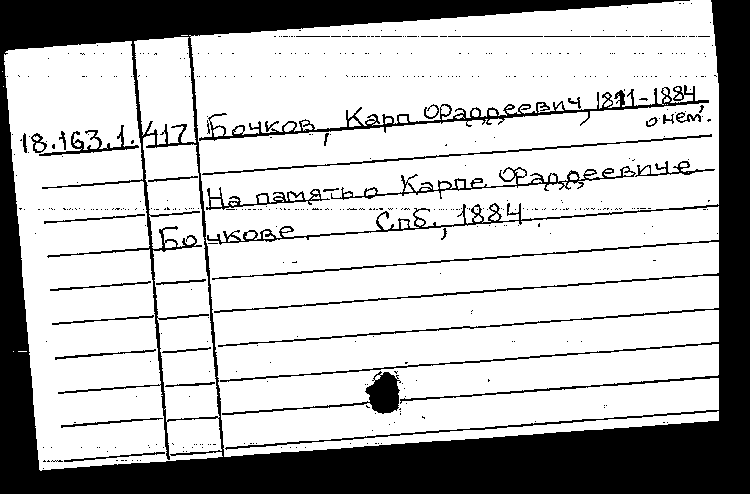 18.163.1.417 Бочков, Карп Фаддеевич, 1811-1884,
о нем.
На память о Карпе Фаддеевиче
Бочкове. Спб., 1884.